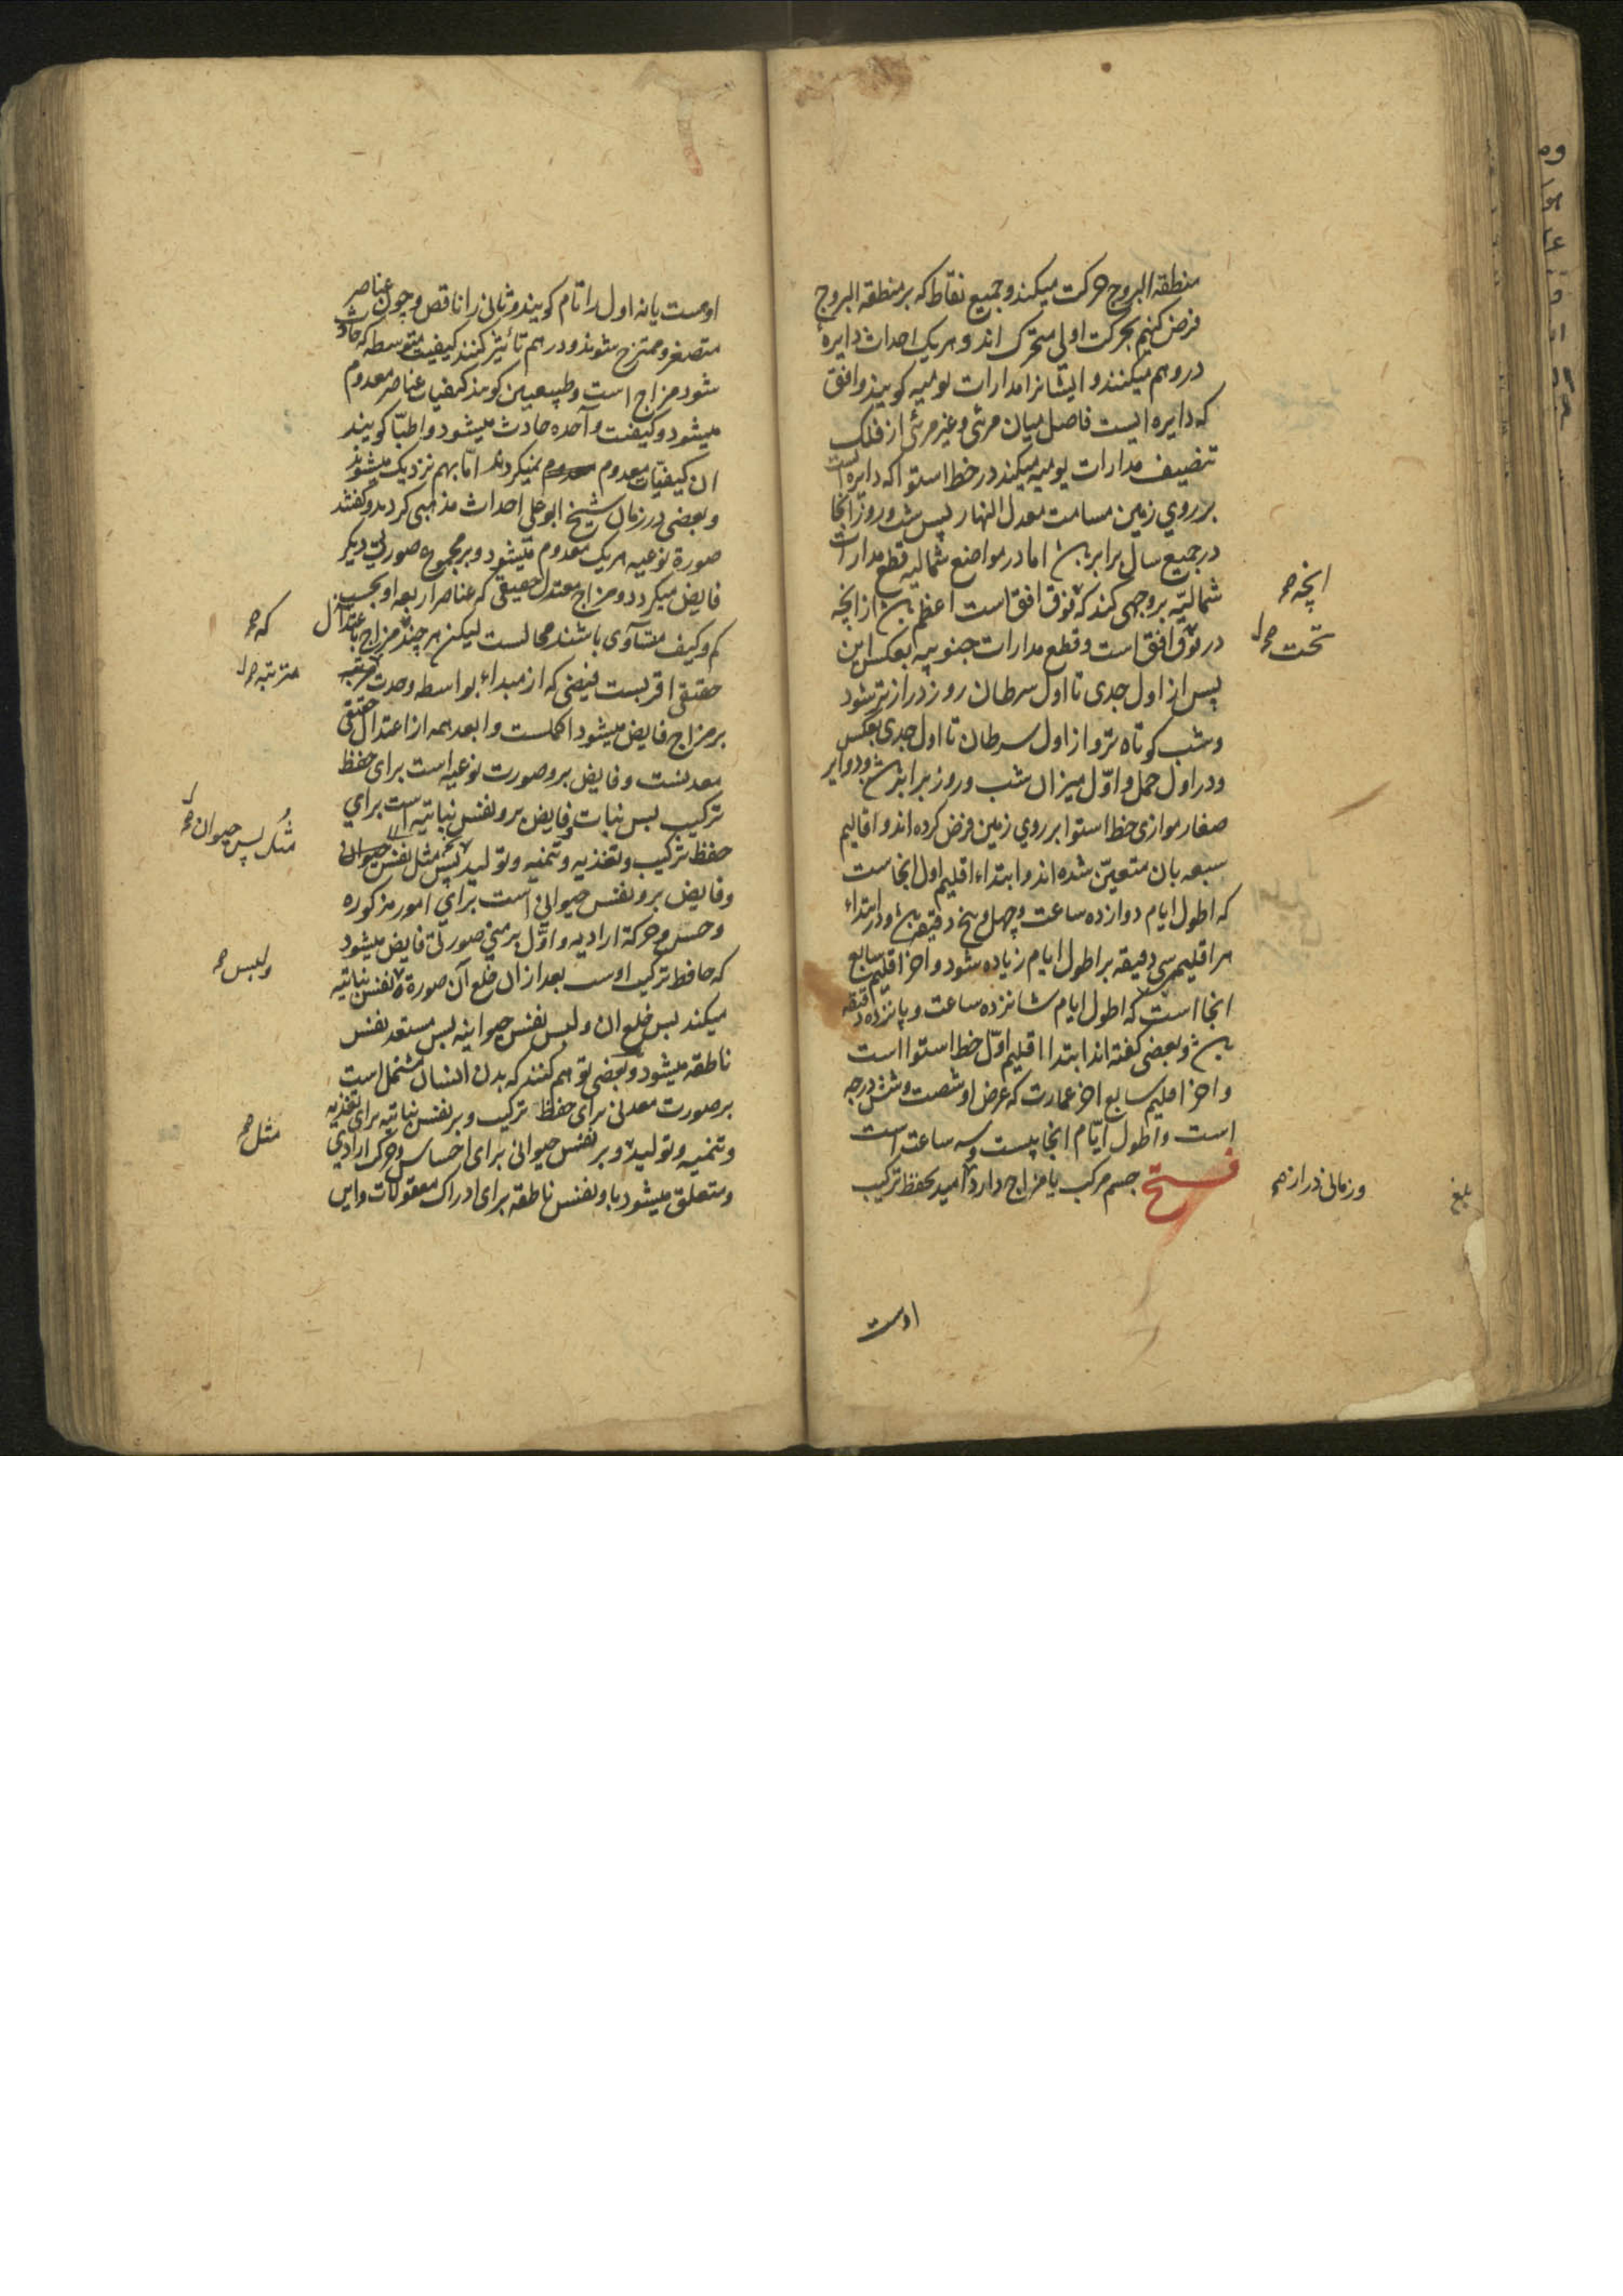 منطقة البروج حرکت میکند و جمیع نقاط که بر منطقة البروج
فرض کنیم بحرکت اولی متحرک اند و هر یک احداث دایرهٔ
در وهم میکنند و ایشانرا مدارات یومیه کویند و افق
که دایره ایست فاصل میان مرئی و غیر مرئی از فلک
تنصیف مدارات یومیه میکند در خط استوا که دایره ایست
بر روي زمین مسامت معدل النهار پس شب و روز انجا
در جمیع سال برابر باشد اما در مواضع شمالیه قطع مدارات
شمالیّه بر وجهی کند که فوق افق است اعظم باشد از انچه
در فوق افق است و قطع مدارات جنوبیه بعکس این
پس از اول جدی تا اول سرطان روز درازتر شود
و شب کوتاه تر و از اول سرطان تا اول جدی بعکس
و در اول حمل و اوّل میزان شب و روز برابر باشد و دوایر
صغار موازی خط استوا بر روي زمین فرض کرده اند و اقالیم
سبعه بان متعیّن شده اند و ابتداء اقلیم اول انجاست
که اطول ایام دوازده ساعت و چهل و پنج دقیقه باشد و در ابتداء
هر اقلیم سی دقیقه بر اطول ایام زیاده شود و اخر اقلیم سابع
انجا است که اطول ایام شانزده ساعت و پانزده دقیقه
باشد و بعضی کفته اند ابتداا قلیم اوّل خط استوا است
و اخر اقلیم سابع اخر عمارت که عرض او شصت و شش درجه
است و اطول ایّام انجا بیست و سه ساعتست
فتح جسم مرکب یا مزاج دارد امید بحفظ ترکیب
اوست
انچه صح
تحت صح ل
و زمانی دراز صح
بلغ
اوهست یا نه اول را تام کویند و ثانی را ناقص و چون عناصر
متصغر و ممتزج شوند و در هم تأثیر کنند کیفیت متوسطه که حادث
شود مزاج است و طبیعیین کویند کیفیات عناصر معدوم
میشود و کیفیت واحده حادث میشود و اطبّا کویند
ان کیفیّات معدوم نمیکردند امّا بهم نزدیک میشوند
و بعضی در زمان شیخ ابو علی احداث مذهبی کردند و کفتند
صورة نوعیه هر یک معدوم میشود و بر مجموع صورتی دیکر
فایض میکردد و مزاج معتدل حقیقی که عناصر اربعه او بحسب
کم و کیف متساوی باشند محالست لیکن هر چند مزاج باعتدال
حقیقی اقربست فیضی که از مبداء بواسطه وحدت مرتبه
بر مزاج فایض میشود اکملست و ابعد همه از اعتدال حقیقی
معدنست و فایض برو صورت نوعیه است برای حفظ
ترکیب پس نبات و فایض برو نفس نباتیه است براي
حفظ ترکیب و تغذیه و تنمیه و تولید پس مثل نفس حیوان
و فایض برو نفس حیوانی است براي امور مذکوره
و حس و حرکة ارادیه و اوّل بر منی صورتی فایض میشود
که حافظ ترکیب اوست بعد از ان خلع آن صورة نفس نباتیه
میکند پس خلع ان و لبس نفس حیوانیه پس مستعد نفس
ناطقه میشود و بعضی توهم کنند که بدن انسان مشتمل است
بر صورت معدنی برای حفظ ترکیب و بر نفس نباتیه برای تغذیه
و تنمیه و تولید و بر نفس حیوانی برای احساس و حرکت ارادي
و متعلق میشود باو نفس ناطقه برای ادراک معقولات و این
که صح
مرتبه صح ل
پس حیوان صح
و لبس صح
مثل صح